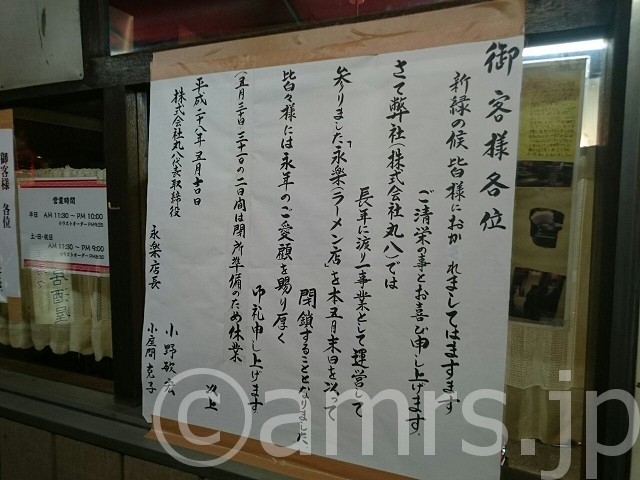 御客様各位
新緑の候 皆様におかれましてはますます
ご清栄の事とお喜び申し上げます。
さて弊社(株式会社丸八)では
長年に渡り一事業として運営して
参りました「永楽(ラーメン店)」を本五月末日を以って
閉鎖することとなりました
皆々様には永年のご愛顧を賜り厚く
御礼申し上げます
(五月三十日 三十一日の二日間は閉所準備のため休業
以上
平成二八年五月吉日
株式会社丸八 代表取締役
小野
永楽店長
御客様 各位
営業時間
平日 AM 11:30 ~ PM 10:00
土・日・祝日
AM 11:30 ~ PM 9:00
©amrs.jp